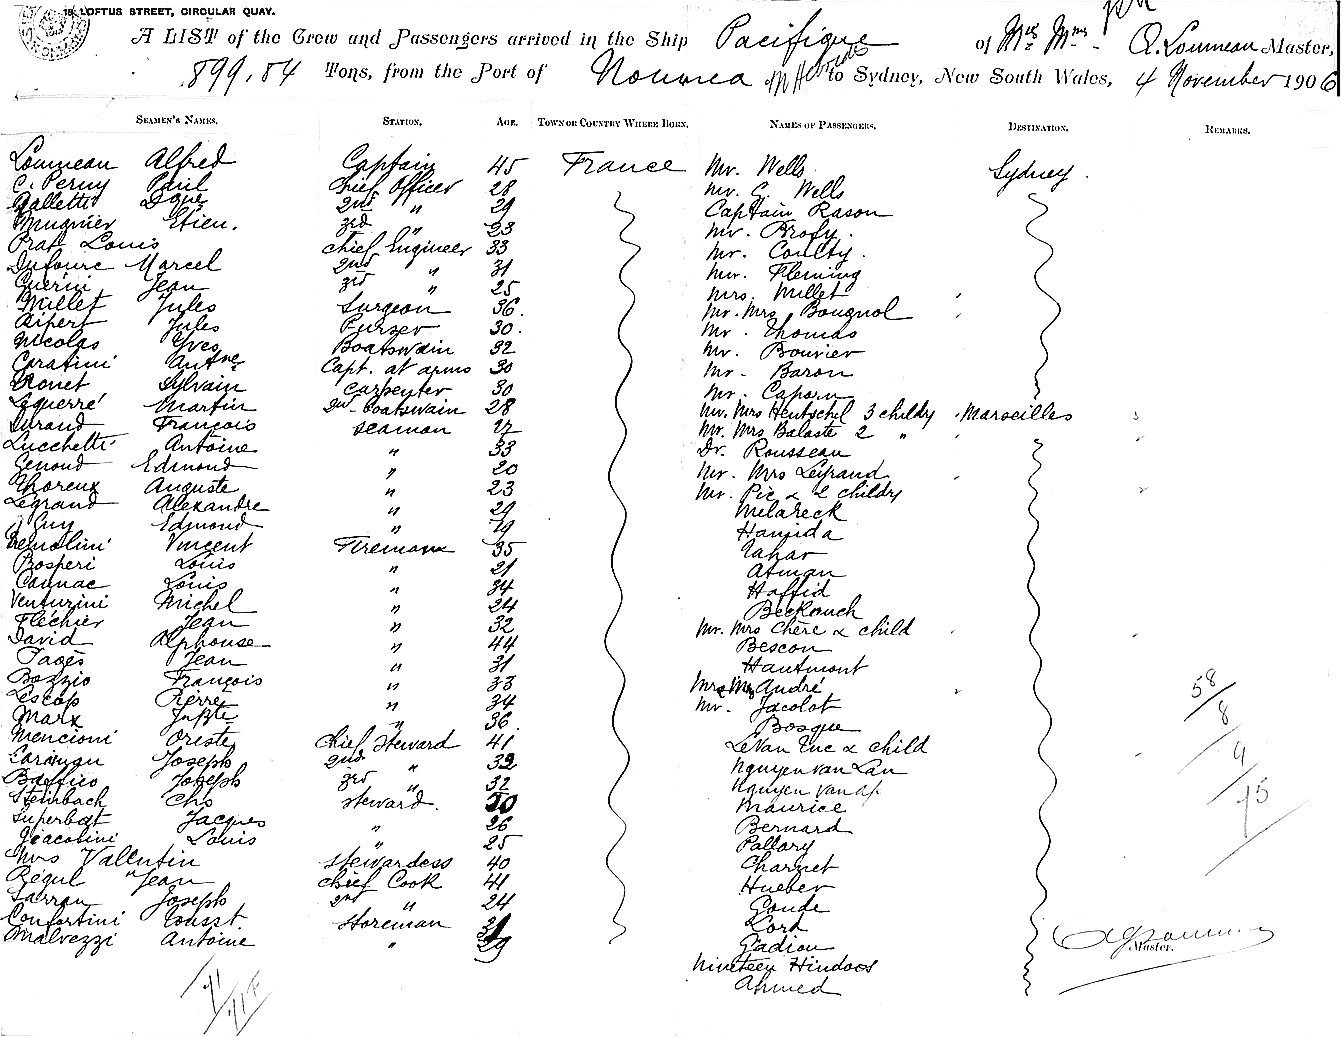 15, LOFTUS STREET, CIRCULAR QUAY.
A LIST of the Crew and Passengers arrived in the Ship Pacifique of Mes. Mms. A. Loumeau Master,
899,84 Tons, from the Port of Noumea & N. Hebrides to Sydney, New South Wales, 4 November 1906
SEAMEN'S NAMES. STATION. AGE. TOWN OR COUNTRY WHERE BORN. NAMES OF PASSENGERS. DESTINATION. REMARKS.
Loumeau Alfred Captain 45 France Mr. Wells Sydney.
C. Perny Paul Chief Officer 28 Mr. C. Wells
Galletti 2nd " 29 Captain Rason
Mugnier Etien. 3rd " 23 Mr. Brofy.
Prat Louis Chief Engineer 33 Mr. Coulty.
Dufoure Marcel 2nd " 31 Mr. Fleming
Guérini Jean 3rd " 25 Mrs. Millet
Millet Jules Surgeon 36. Mr. Mrs Bougnol
Aipert Jules Purser 30. Mr. Thomas
Nicolas Yves Boatswain 32 Mr. Bouvier
Coratini Antne Capt. at arms 30 Mr. Baron
Monet Sylvain Carpenter 30 Mr. Caporn
Leguerré Martin 2nd boatswain 28 Mr. Mrs Hentschel 3 childry Marseilles
Durand François seaman 42 Mr. Mrs Balaste 2 "
Lucchetti Antoine " 33 Dr. Rousseau
Genoud Edmond " 20 Mr. Mrs Legrand
Thoreux Auguste " 23 Mr. Pic & 2 childry
Legrand Alexandre " 29 Melareck
Guy Edmond " 19 Hamida
Vincent Firemann 35 Tahar
Prosperi Louis " 21 Atman
Caunac Louis " 34 Haffid
Venturini Michel " 24 Beckouch
Fléchier Jean " 32 Mr. Mrs Chère & child
David Alphonse " 44 Bescon
Pagès Jean " 31 Hautmont
Bozzio François " 33 Mr & Mrs André
Lescop Pierre " 34 Mr. Jacolot
Marx Jn Bte " 36. Bosque
Mencioni Oriste Chief Steward 41 Le Van Tuc & child
Joseph 2nd " 32 Nguyen van Lan
Baffico Joseph 3rd " 32 Nguyen van ap.
Steinbach Chs Steward. 20 Maurice
Superbat Jacques " 26 Bernard
Giacobini Louis " 25 Pallary
Mrs Vallentin Stewardess 40 Charnet
Régul Jean Chief Cook 41 Hueber
Sarran Joseph 2nd " 24 Goude
Confortini Tousst. Storeman 21 Lord
Malvezzi Antoine " 29 Gadiou
Nineteen Hindoos
Ahmed
58
8
9
75
Master.